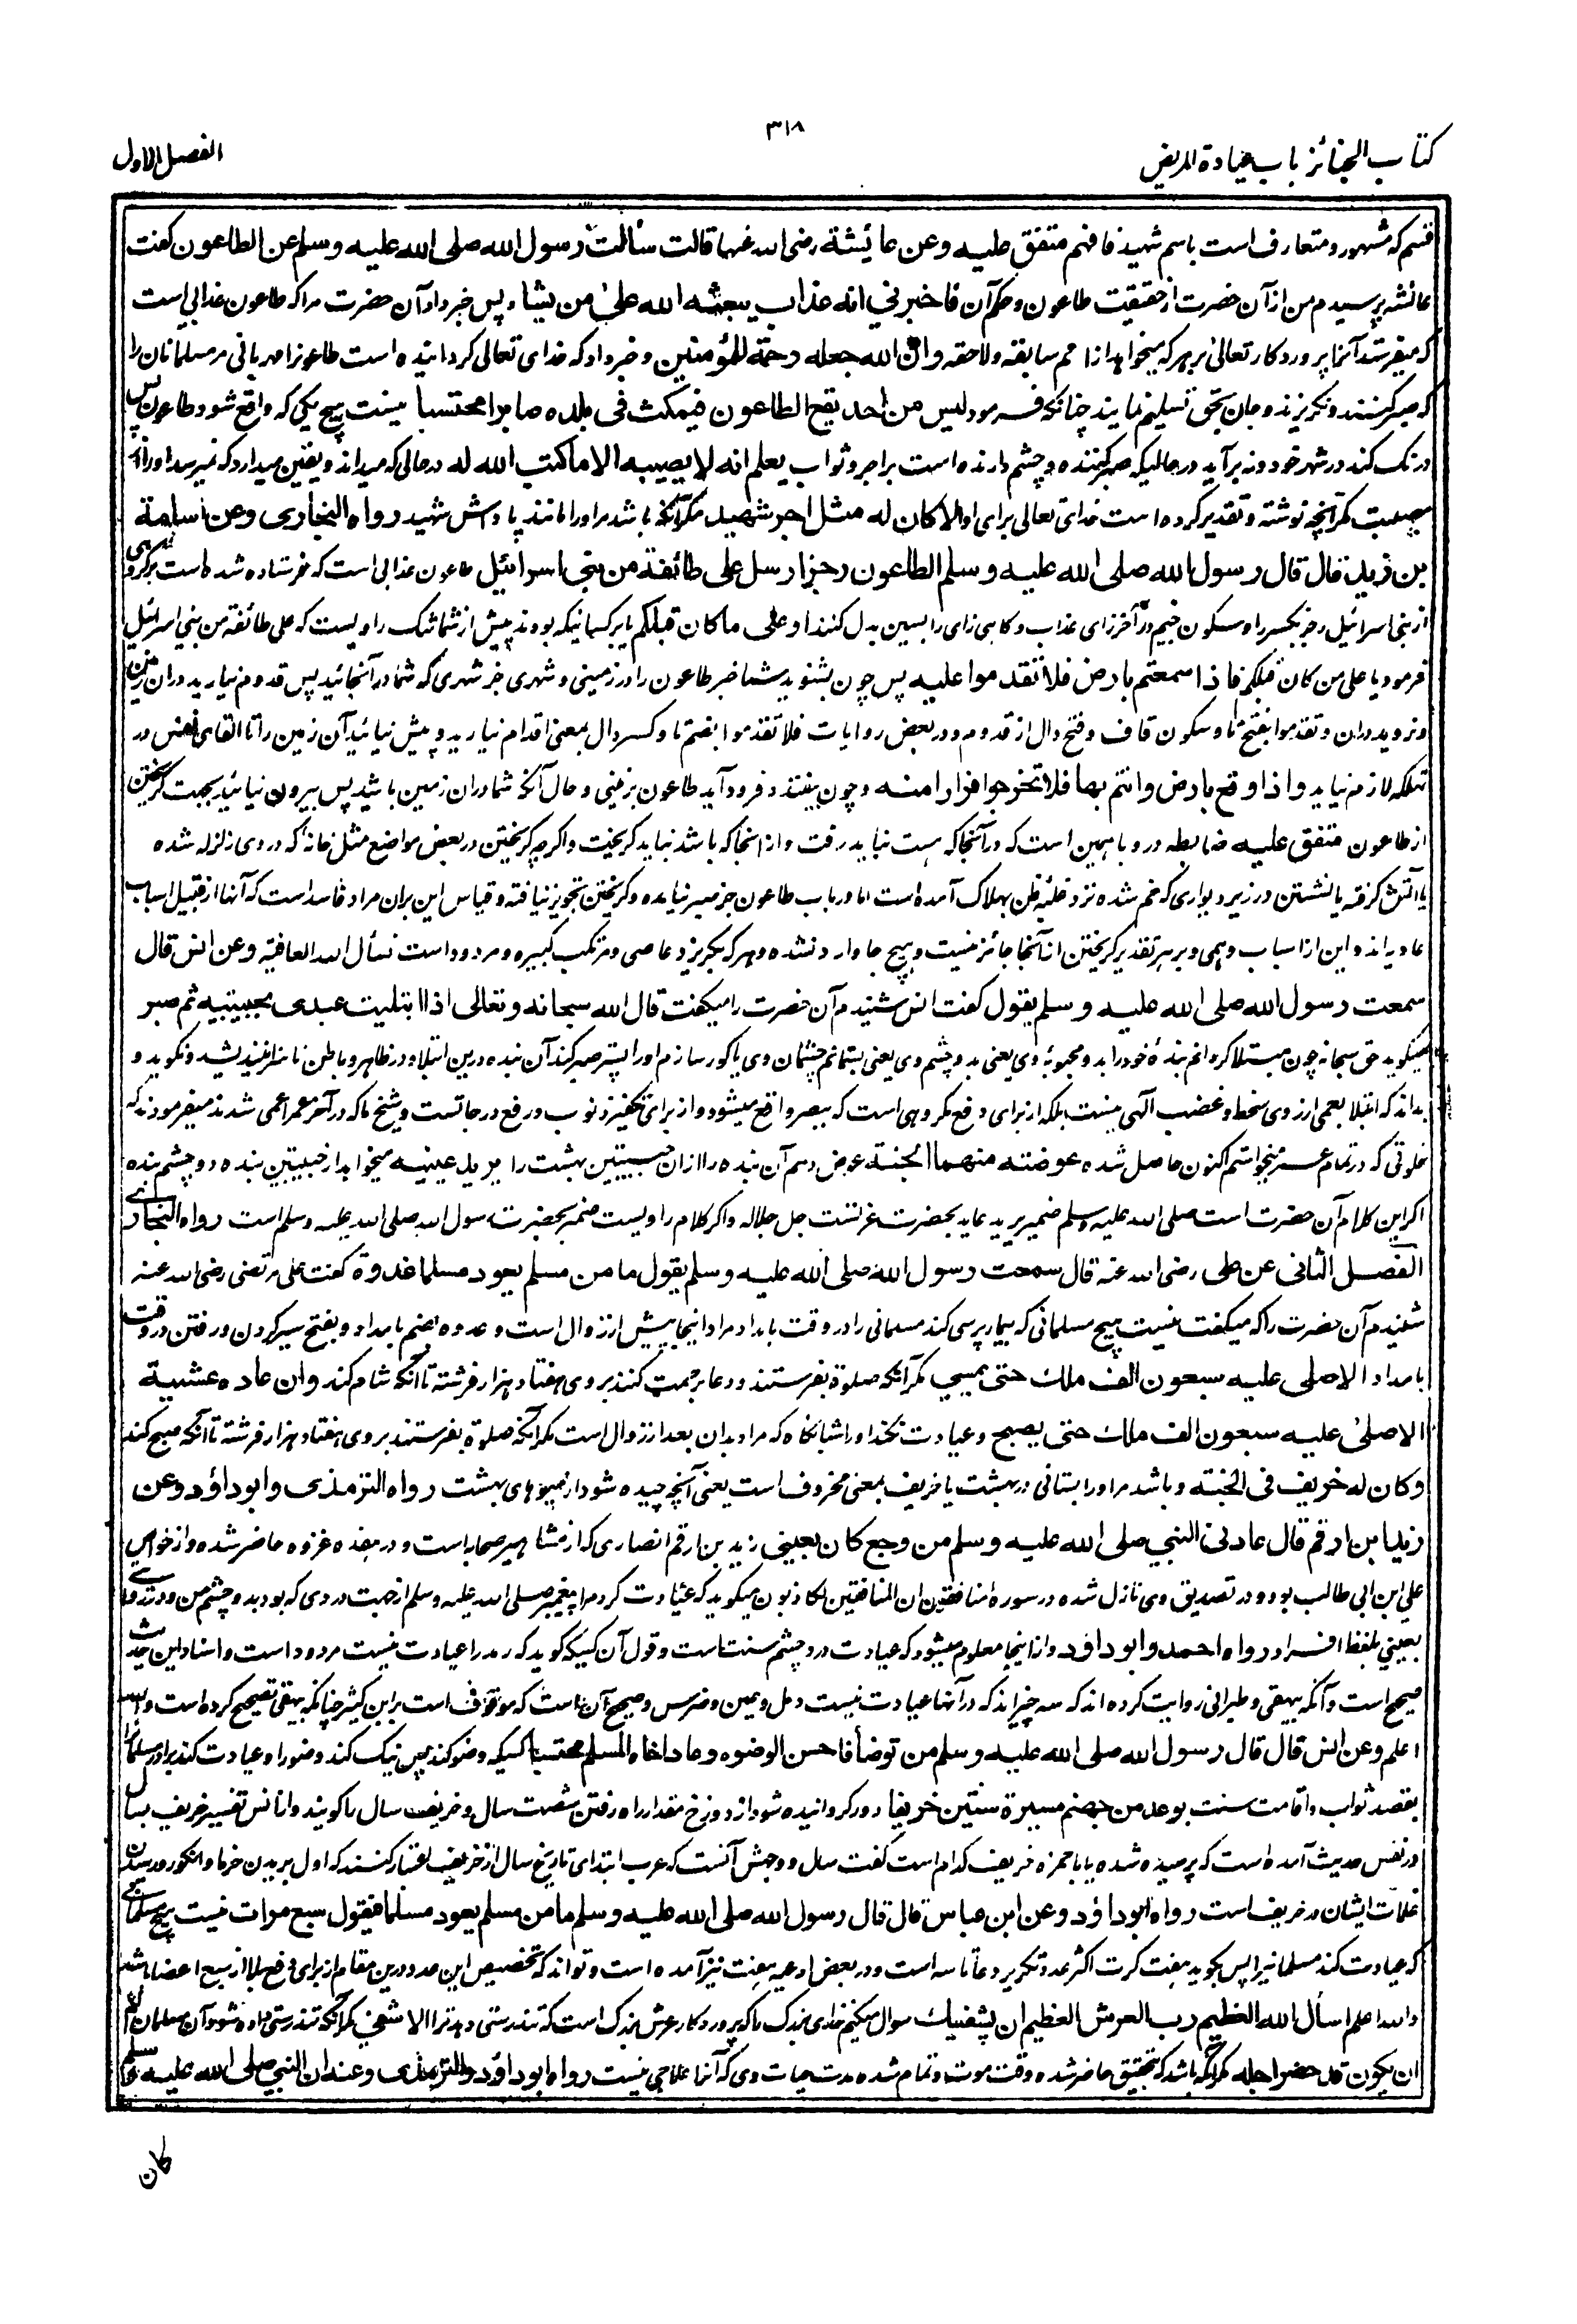 ۳۱۸
کتاب الجنائز باب عیادة المریض
الفصل الاول
قسم که مشهور و متعارف است باسم شهید فافهم متفق علیه وعن عائشة رضی الله عنها قالت سألت رسول الله صلی الله علیه وسلم عن الطاعون گفت
عائشه پرسیدم من از آن حضرت از حقیقت طاعون و حکم آن فاخبرنی انه عذاب یبعثه الله علی من یشاء پس خبر داد آن حضرت مرا که طاعون عذابی است
که میفرستد آنرا پروردگار تعالی بر هر که میخواهد از امم سابقه ولاحقه وان الله جعله رحمة للمؤمنین و خبر داد که خدای تعالی گردانیده است طاعون را مهربانی مر مسلمانان را
که صبر کنند و نگریزند و جان بحق تسلیم نمایند چنانکه فرمود لیس من احد یقع الطاعون فیمکث فی بلده صابرا محتسبا نیست هیچ یکی که واقع شود طاعون پس
درنگ کند در شهر خود و نه برآید در حالیکه صبر کننده و چشم دارنده است بر اجر و ثواب یعلم انه لا یصیبه الا ما کتب الله له در حالی که میداند و یقین میدارد که نمیرسد او را
مصیبت مگر آنچه نوشته و تقدیر کرده است خدای تعالی برای او الا کان له مثل اجر شهید مگر آنکه باشد مر او را مانند پاداش شهید رواه البخاری وعن اسامة
بن زید قال قال رسول الله صلی الله علیه وسلم الطاعون رجز ارسل علی طائفة من بنی اسرائیل طاعون عذابی است که فرستاده شده است بر گروهی
از بنی اسرائیل رجز بکسر را و سکون جیم در آخر زای عذاب و گاهی زای را بسین بدل کنند او علی ما کان قبلکم یا بر کسانیکه بودند پیش از شما شک راویست که علی طائفة من بنی اسرائیل
فرمود یا علی من کان قبلکم فاذا سمعتم بارض فلا تقدموا علیه پس چون بشنوید شما خبر طاعون را در زمینی و شهری جز شهری که شما در آنجائید پس قدوم نیارید دران زمین
و نروید دران و تقدموا بفتح تا و سکون قاف و فتح دال از قدوم و در بعض روایات فلا تقدموا بضم تا و کسر دال بمعنی اقدام نیارید و پیش نیائید آن زمین را تا القای نفس در
تهلکه لازم نیاید واذا وقع بارض وانتم بها فلا تخرجوا فرارا منه و چون بیفتد و فرود آید طاعون بزمینی و حال آنکه شما دران زمین باشید پس بیرون نیائید بجهت گریختن
از طاعون متفق علیه ضابطه در وبا همین است که در آنجا که هست نباید رفت و از انجا که باشد نباید گریخت و اگرچه گریختن در بعض مواضع مثل خانه که در وی زلزله شده
یا آتش گرفته یا نشستن در زیر دیواری که خم شده نزد غلبه ظن بهلاک آمده است اما در باب طاعون جز صبر نیامده و گریختن تجویز نیافته و قیاس این بران مراد فاسد است که آنها از قبیل اسباب
عادیه اند و این از اسباب وهمی و بر هر تقدیر گریختن از آنجا جائز نیست و هیچ جا وارد نشده و هر که بگریزد عاصی و مرتکب کبیره و مردود است نسأل الله العافیة وعن انس قال
سمعت رسول الله صلی الله علیه وسلم یقول گفت انس شنیدم آن حضرت را میگفت قال الله سبحانه وتعالی اذا ابتلیت عبدی بحبیبتیه ثم صبر
میگوید حق سبحانه چون مبتلا گردانم بنده خود را بدو محبوبه وی یعنی بدو چشم وی یعنی بستانم چشمان وی یا کور سازم او را پستر صبر کند آن بنده درین ابتلا و در ظاهر و باطن ناسزا نیندیشد و نگوید و
بداند که ابتلا بعمی از روی سخط و غضب الهی نیست بلکه از برای دفع مکروهی است که ببصر واقع میشود و از برای تکفیر ذنوب و رفع درجاتست و شیخ ما که در آخر عمر اعمی شدند میفرمودند که
خلوتی که در تمام عمر میخواستم اکنون حاصل شده عوضته منهما الجنة عوض دهم آن بنده را ازان حبیبتین بهشت را یرید عینیه میخواهد از حبیبتین بنده دو چشم بنده
اگر این کلام آن حضرت است صلی الله علیه وسلم ضمیر یرید عاید بحضرت عزتست جل جلاله و اگر کلام راویست ضمیر بحضرت رسول الله صلی الله علیه وسلم است رواه البخاری
الفصل الثانی عن علی رضی الله عنه قال سمعت رسول الله صلی الله علیه وسلم یقول ما من مسلم یعود مسلما غدوة گفت علی مرتضی رضی الله عنه
شنیدم آن حضرت را که میگفت نیست هیچ مسلمانی که بیمار پرسی کند مسلمانی را در وقت بامداد مراد اینجا پیش از زوال است و غدوه بضم بامداد و بفتح سیر کردن و رفتن در وقت
بامداد الا صلی علیه سبعون الف ملک حتی یمسی مگر آنکه صلوة بفرستند و دعا برحمت کنند بر وی هفتاد هزار فرشته تا آنکه شام کند وان عاده عشیة
الا صلی علیه سبعون الف ملک حتی یصبح و عیادت نکند او را شبانگاه که مراد بدان بعد از زوال است مگر آنکه صلوة بفرستند بر وی هفتاد هزار فرشته تا آنکه صبح کند
وکان له خریف فی الجنة و باشد مر او را بستانی در بهشت یا خریف بمعنی مخروف است یعنی آنچه چیده شود از میوهای بهشت رواه الترمذی وابو داؤد وعن
زید ابن ارقم قال عادنی النبی صلی الله علیه وسلم من وجع کان بعینی زید بن ارقم انصاری که از مشاهیر صحابه است و در هفده غزوه حاضر شده و از خواص
علی ابن ابی طالب بود و در تصدیق وی نازل شده در سوره منافقین ان المنافقین لکاذبون میگوید که عیادت کرد مرا پیغمبر صلی الله علیه وسلم از جهت دردی که بود بدو چشم من و در روایتی
بعینی بلفظ افراد رواه احمد وابو داود و از اینجا معلوم میشود که عیادت درد چشم سنت است و قول آن کسیکه گوید که رمد را عیادت نیست مردود است و اسناد این حدیث
صحیح است و آنکه بیهقی و طبرانی روایت کرده اند که سه چیزاند که در آنها عیادت نیست دمل و یمین و ضرس و صحیح آن است که موقوف است بر ابن کثیر چنانکه بیهقی تصحیح کرده است والله
اعلم وعن انس قال قال رسول الله صلی الله علیه وسلم من توضأ فاحسن الوضوء وعاد اخاه المسلم محتسبا کسیکه وضو کند پس نیک کند وضو را و عیادت کند برادر مسلمان را
بقصد ثواب و اقامت سنت بوعد من جهنم مسیرة ستین خریفا دور گردانیده شود از دوزخ مقدار راه رفتن شصت سال و خریف سال را گویند و از انس تفسیر خریف بسال
در نفس حدیث آمده است که پرسیده شده یا ابا حمزه خریف کدام است گفت سال و وجهش آنست که عرب ابتدای تاریخ سال از خریف اعتبار کنند که اول بریدن خرما و انگور و رسیدن
غلات ایشان در خریف است رواه ابو داؤد وعن ابن عباس قال قال رسول الله صلی الله علیه وسلم ما من مسلم یعود مسلما فیقول سبع مرات نیست هیچ مسلمانی
که عیادت کند مسلمانیرا پس بگوید هفت کرت اکثر عدد تکریر دعا تا سه است و در بعض ادعیه هفت نیز آمده است و تواند که تخصیص این عدد درین مقام از برای دفع بلا از سبع اعضا باشد
والله اعلم اسأل الله العظیم رب العرش العظیم ان یشفیک سوال میکنم خدای بزرگ را که پروردگار عرش بزرگ است که تندرستی دهد ترا الا شفی مگر آنکه تندرستی داده شود آن مسلمان الا
ان یکون قد حضر اجله مگر آنکه باشد که بتحقیق حاضر شده وقت موت و تمام شده مدت حیات وی که آنرا علاجی نیست رواه ابو داؤد والترمذی وعنه ان النبی صلی الله علیه وسلم
کان